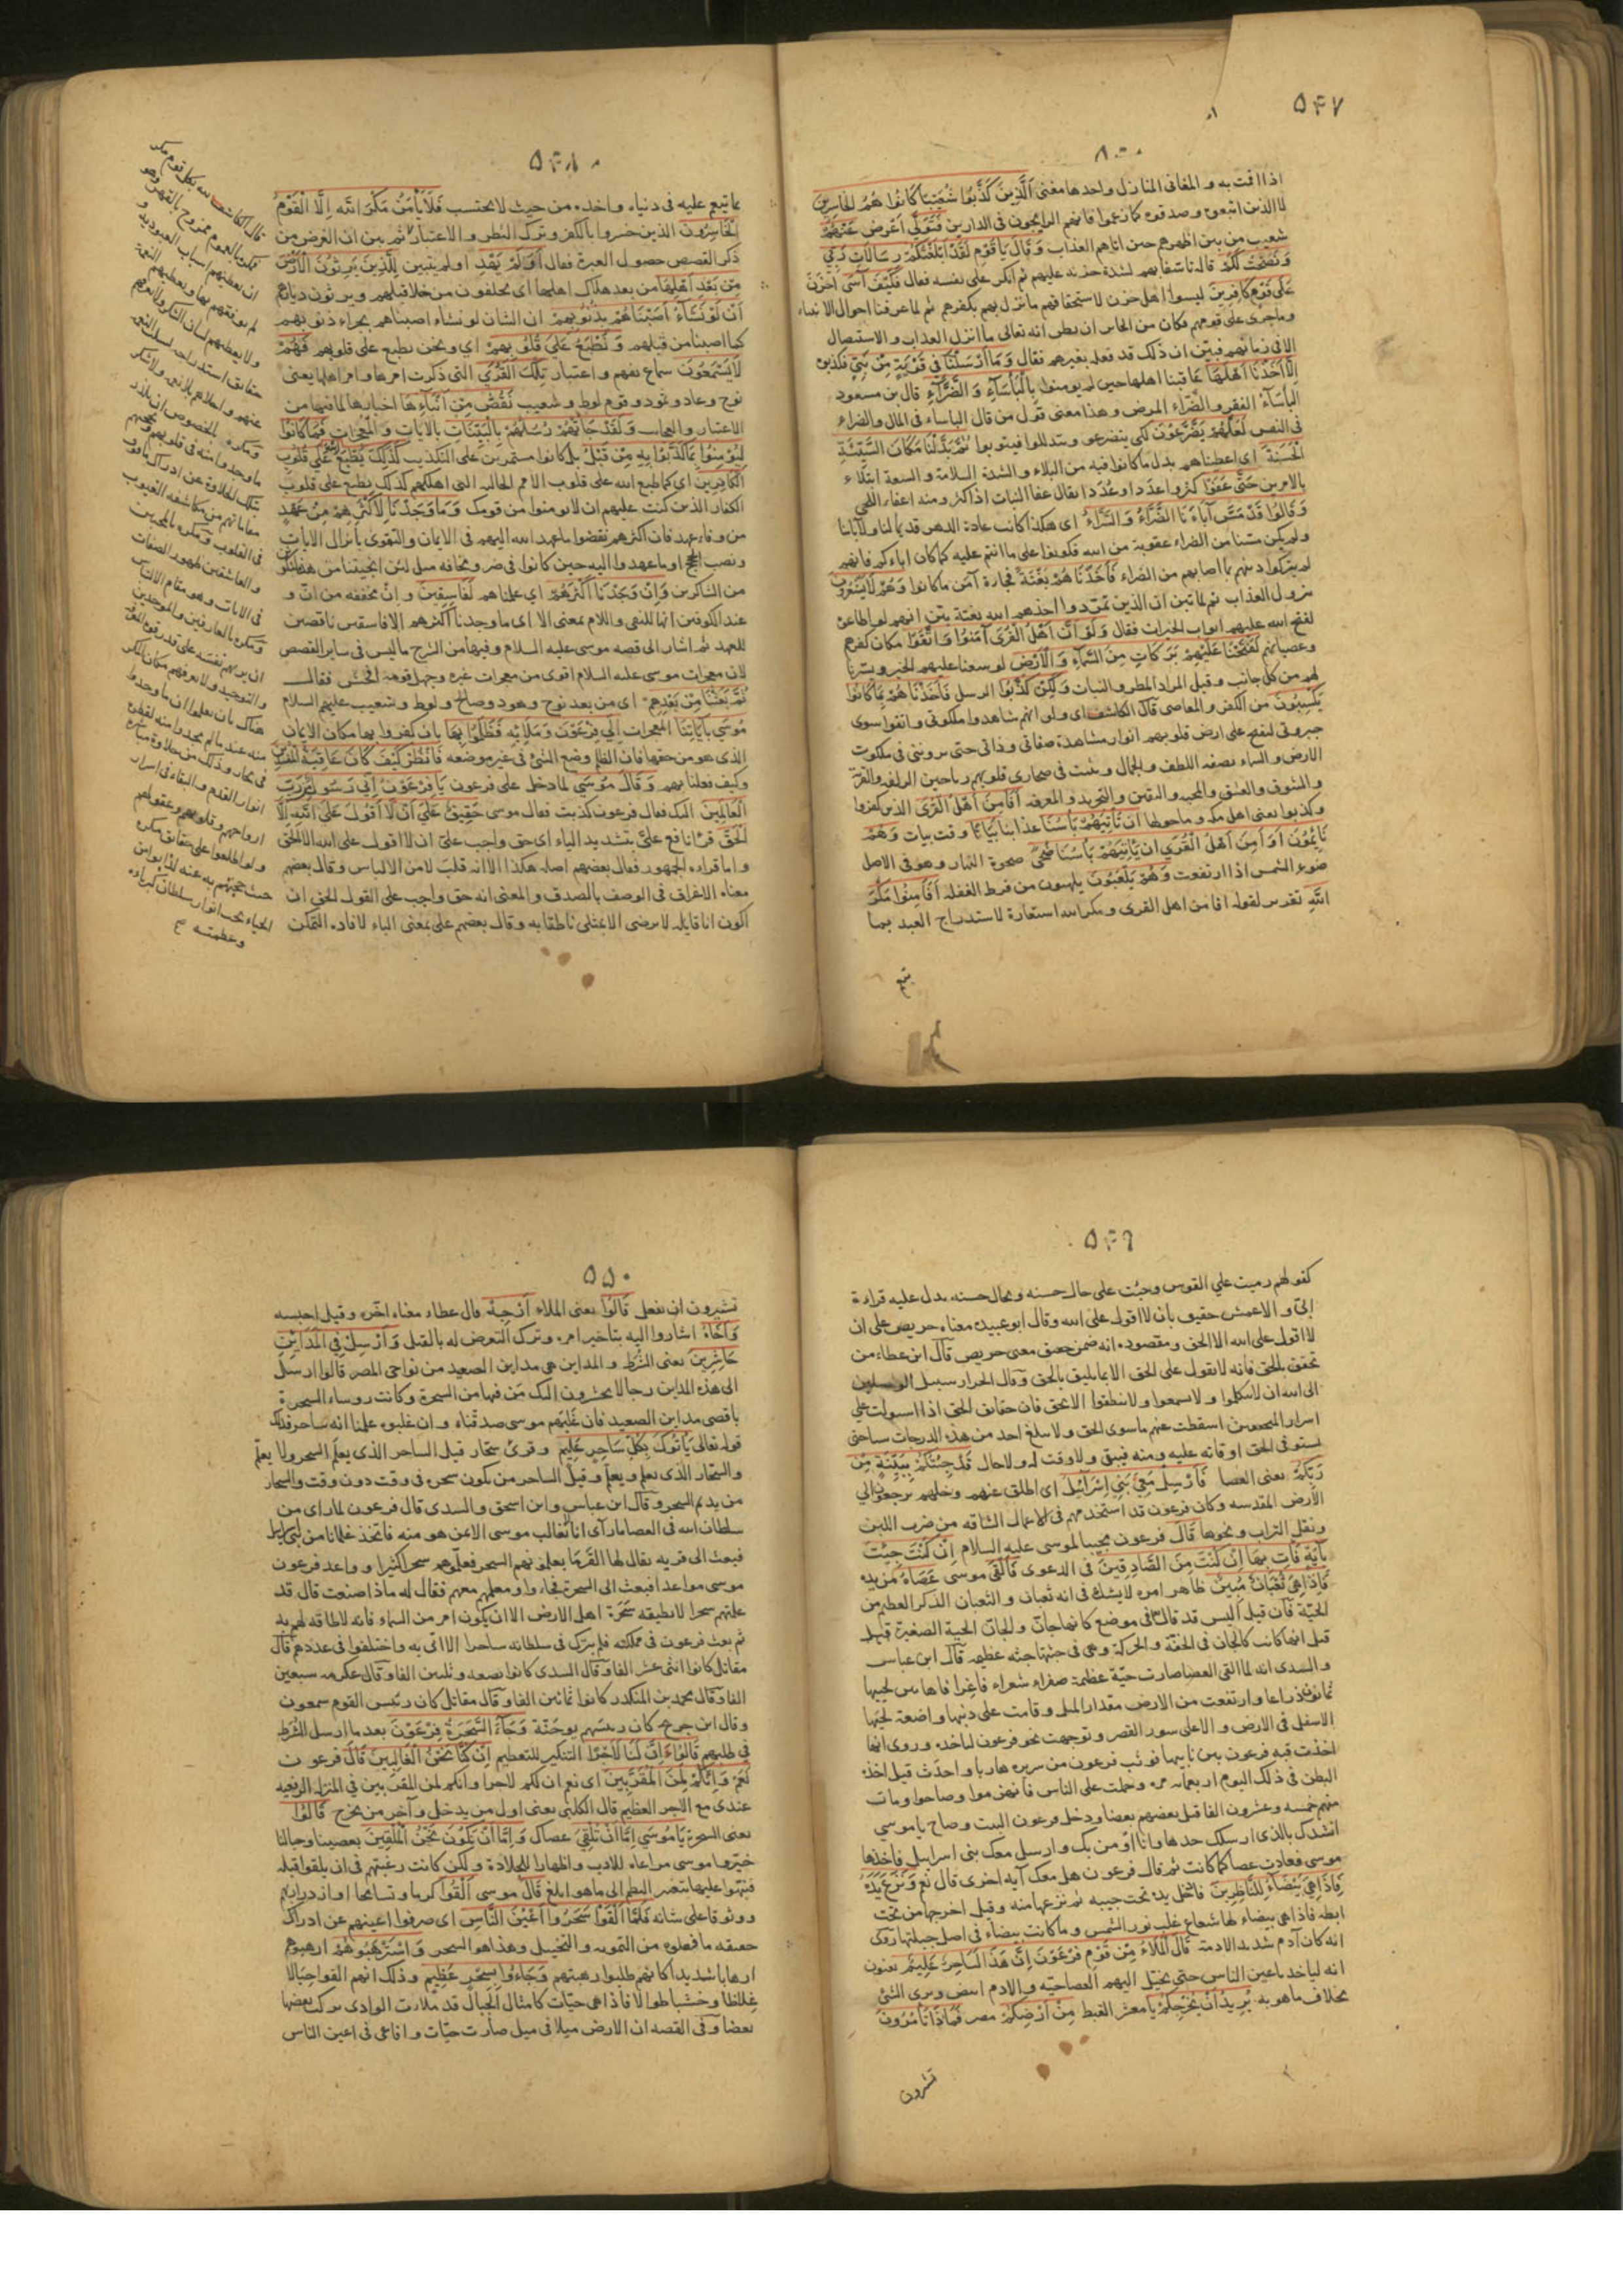 ٥٤٧
٨٠٠
اذا اقمت به و المغانى المنازل واحدها مغنى الَّذِينَ كَذَّبُوا شُعَيْبًا كَانُوا هُمُ الْخَاسِرِينَ
لا الذين اتبعوه وصدقوه كما زعموا فانهم الرابحون فى الدارين فَتَوَلَّى اعرض عَنْهُمْ
شعيب من بين اظهرهم حين اتاهم العذاب وَقَالَ يَا قَوْمِ لَقَدْ أَبْلَغْتُكُمْ رِسَالَاتِ رَبِّي
وَنَصَحْتُ لَكُمْ قاله تاسفا بهم لشدة حزنه عليهم ثم انكر على نفسه فقال فَكَيْفَ آسَى احزن
عَلَى قَوْمٍ كَافِرِينَ ليسوا اهل حزن لاستحقاقهم ما نزل بهم بكفرهم ثم لما عرفنا احوال الانبياء
وما جرى على قومهم فكان من الجائز ان يظن انه تعالى ما انزل العذاب و الاستيصال
الا فى زمانهم فبين ان ذلك قد فعله بغيرهم فقال وَمَا أَرْسَلْنَا فِي قَرْيَةٍ مِنْ نَبِيٍّ فكذبن
إِلَّا أَخَذْنَا أَهْلَهَا عاقبنا اهلها حين لم يومنوا بِالْبَأْسَاءِ وَالضَّرَّاءِ قال بن مسعود
البأساء الفقر والضراء المرض وهذا معنى قول من قال الباساء فى المال والضراء
فى النفس لَعَلَّهُمْ يَضَّرَّعُونَ لكى يتضرعو ويتذللوا فيتوبوا ثُمَّ بَدَّلْنَا مَكَانَ السَّيِّئَةِ
الْحَسَنَةَ اى اعطيناهم بدل ما كانوا فيه من البلاء والشدة السلامة والسعة ابتلاء
بالامرين حَتَّى عَفَوْا كثروا عددا وعُدَدا يقال عفا النبات اذا كثر ومنه اعفاء اللحى
وَقَالُوا قَدْ مَسَّ آبَاءَنَا الضَّرَّاءُ وَالسَّرَّاءُ اى هكذا كانت عادة الدهر قديما لنا ولآبائنا
ولم يكن مسنا من الضراء عقوبة من الله فكونوا على ما انتم عليه كما كان اباءكم فانهم
لم يتركوا دينهم بما اصابهم من الضراء فَأَخَذْنَاهُمْ بَغْتَةً فجاءة آمن ما كانوا وَهُمْ لَا يَشْعُرُونَ
نزول العذاب ثم لما بين ان الذين تمردوا اخذهم الله بغتة بين انهم لو اطاعوا
لفتح الله عليهم ابواب الخيرات فقال وَلَوْ أَنَّ أَهْلَ الْقُرَى آمَنُوا وَاتَّقَوْا مكان كفرهم
وعصيانهم لَفَتَحْنَا عَلَيْهِمْ بَرَكَاتٍ مِنَ السَّمَاءِ وَالْأَرْضِ لوسعنا عليهم الخير ويسرنا
لهم من كل جانب وقيل المراد المطر والنبات وَلَكِنْ كَذَّبُوا الرسل فَأَخَذْنَاهُمْ بِمَا كَانُوا
يَكْسِبُونَ من الكفر والمعاصى قال الكاشف اى ولو انهم شاهدوا ملكوتى واتقوا سوى
جبروتى لنفتح على ارض قلوبهم انوار مشاهدة صفاتى وذاتى حتى يروننى فى ملكوت
الارض والسماء بصفه اللطف والجمال وينبت فى صحارى قلوبهم رياحين الزلفه والقربة
والشوق والعشق والمحبه واليقين والتوحيد والمعرفه أَفَأَمِنَ أَهْلُ الْقُرَى الذين كفروا
وكذبوا يعنى اهل مكه وما حولها أَنْ يَأْتِيَهُمْ بَأْسُنَا عذابنا بَيَاتًا وقت بيات وَهُمْ
نَائِمُونَ أَوَأَمِنَ أَهْلُ الْقُرَى أَنْ يَأْتِيَهُمْ بَأْسُنَا ضُحًى صحوة النهار وهو فى الاصل
ضوء الشمس اذا ارتفعت وَهُمْ يَلْعَبُونَ يلهون من فرط الغفله أَفَأَمِنُوا مَكْرَ
اللَّهِ تقرير لقوله افامن اهل القرى ومكر الله استعارة لاستدراج العبد بما
يتبع
٥٤٨
ما تبع عليه فى دنياه واخذه من حيث لا يحتسب فَلَا يَأْمَنُ مَكْرَ اللَّهِ إِلَّا الْقَوْمُ
الْخَاسِرُونَ الذين خسروا بالكفر وترك النظر والاعتبار ثم بين ان الغرض من
ذكر القصص حصول العبرة فقال أَوَلَمْ يَهْدِ اولم يتبين لِلَّذِينَ يَرِثُونَ الْأَرْضَ
مِنْ بَعْدِ أَهْلِهَا من بعد هلاك اهلها اى يخلفون من خلا قبلهم ويرثون ديارهم
أَنْ لَوْ نَشَاءُ أَصَبْنَاهُمْ بِذُنُوبِهِمْ ان الشان لو نشاء اصبناهم بجزاء ذنوبهم
كما اصبنا من قبلهم وَنَطْبَعُ عَلَى قُلُوبِهِمْ اى ونحن نطبع على قلوبهم فَهُمْ
لَا يَسْمَعُونَ سماع تفهم واعتبار تِلْكَ الْقُرَى التى ذكرت امرها وامر اهلها يعنى
نوح وعاد وثمود وقوم لوط وشعيب نَقُصُّ عَلَيْكَ مِنْ أَنْبَائِهَا اخبارها لما فيها من
الاعتبار والعجاب وَلَقَدْ جَاءَتْهُمْ رُسُلُهُمْ بِالْبَيِّنَاتِ بالآيات والمعجزات فَمَا كَانُوا
لِيُؤْمِنُوا بِمَا كَذَّبُوا بِهِ مِنْ قَبْلُ بل كانوا مستمرين على التكذيب كَذَلِكَ يَطْبَعُ اللَّهُ عَلَى قُلُوبِ
الْكَافِرِينَ اى كما طبع الله على قلوب الامم الخاليه التى اهلكهم كذلك يطبع على قلوب
الكفار الذين كتبت عليهم ان لا يومنوا من قومك وَمَا وَجَدْنَا لِأَكْثَرِهِمْ مِنْ عَهْدٍ
من وفاء عهد فان اكثرهم نقضوا ما عهد الله اليهم فى الايمان والتقوى بانزال الايات
ونصب الحجج او ما عهدوا اليه حين كانوا فى ضر ومخافة مثل لئن انجيتنا من هذه لنكونن
من الشاكرين وَإِنْ وَجَدْنَا أَكْثَرَهُمْ اى علمناهم لَفَاسِقِينَ وان مخففه من انّ و
عند الكوفيين انها للنفى واللام بمعنى الا اى ما وجدنا اكثرهم الا فاسقين ناقصين
للعهد ثم اشار الى قصه موسى عليه السلام وفيها من الشرح ما ليس فى ساير القصص
لان معجزات موسى عليه السلام اقوى من معجزات غيره وجهل قومه افحش فقال
ثُمَّ بَعَثْنَا مِنْ بَعْدِهِمْ اى من بعد نوح وهود وصالح ولوط وشعيب عليهم السلام
مُوسَى بِآيَاتِنَا المعجزات إِلَى فِرْعَوْنَ وَمَلَئِهِ فَظَلَمُوا بِهَا بان كفروا بها مكان الايمان
الذى هو من حقها فان الظلم وضع الشئ فى غير موضعه فَانْظُرْ كَيْفَ كَانَ عَاقِبَةُ الْمُفْسِدِينَ
وكيف فعلنا بهم وَقَالَ مُوسَى لما دخل على فرعون يَا فِرْعَوْنُ إِنِّي رَسُولٌ مِنْ رَبِّ
الْعَالَمِينَ اليك فقال فرعون كذبت فقال موسى حَقِيقٌ عَلَى أَنْ لَا أَقُولَ عَلَى اللَّهِ إِلَّا
الْحَقَّ قرأ نافع علىّ بتشديد الياء اى حق واجب علىّ ان لا اقول على الله الا الحق
واما قراءه الجمهور فقال بعضهم اصله هكذا الا انه قلب لامن الالباس وقال بعضهم
معناه الاغراق فى الوصف بالصدق والمعنى انه حق واجب على القول الحق ان
اكون انا قايله لا يرضى الا بمثلى ناطقا به وقال بعضهم على بمعنى الباء لافاده التمكن
قال الكاشف لله بكل قوم مكر
٥٤٩
كقولهم رميت على القوس وجئت على حال حسنه وبحال حسنه يدل عليه قراءة
ابىّ و الاعمش حقيق بان لا اقول على الله وقال ابو عبيد معناه حريص على ان
لا اقول على الله الا الحق ومقصوده انه ضمن حقيق معنى حريص قال ابن عطاء من
تحقق بالحق فانه لا يقول على الحق الا بما يليق بالحق وقال الخراز سبيل الواصلين
الى الله ان لا يتكلموا ولا يسمعوا ولا ينطقوا الا بحق فان حقايق الحق اذا استولت على
اسرار المحققين اسقطت عنهم ما سوى الحق ولا يبلغ احد من هذه الدرجات ساحتى
يستوفى الحق اوقاته عليه ومنه فيبقى ولا وقت له ولا حال قَدْ جِئْتُكُمْ بِبَيِّنَةٍ مِنْ
رَبِّكُمْ يعنى العصا فَأَرْسِلْ مَعِيَ بَنِي إِسْرَائِيلَ اى اطلق عنهم وخلهم يرجعوا الى
الارض المقدسه وكان فرعون قد استخدمهم فى الاعمال الشاقه من ضرب اللبن
ونقل التراب ونحوها قَالَ فرعون مجيبا لموسى عليه السلام إِنْ كُنْتَ جِئْتَ
بِآيَةٍ فَأْتِ بِهَا إِنْ كُنْتَ مِنَ الصَّادِقِينَ فى الدعوى فَأَلْقَى موسى عَصَاهُ من يده
فَإِذَا هِيَ ثُعْبَانٌ مُبِينٌ ظاهر امره لا يشك فى انه ثعبان والثعبان الذكر العظيم من
الحيّة فان قيل اليس قد قال فى موضع كانها جان والجان الحية الصغيرة قيل
قيل انها كانت كالجان فى الخفة والحركة وهى فى جثتها جثه عظيمه قال ابن عباس
والسدى انه لما القى العصا صارت حيّة عظيمة صفراء شعراء فاغرا فاها بين لحييها
ثمانون ذراعا وارتفعت من الارض مقدار الميل وقامت على ذنبها واضعة لحيها
الاسفل فى الارض و الاعلى سور القصر وتوجهت نحو فرعون لتاخذه وروى انها
اخذت قبه فرعون بين نابيها فوثب فرعون من سريره هاربا واحدث قيل اخذه
البطن فى ذلك اليوم اربعمائه مره وحملت على الناس فانهزموا وصاحوا ومات
منهم خمسه وعشرون الفا قتل بعضهم بعضا ودخل فرعون البيت وصاح يا موسى
انشدك بالذى ارسلك خذها وانا اومن بك وارسل معك بنى اسرايل فاخذها
موسى فعادت عصا كما كانت ثم قال فرعون هل معك آيه اخرى قال نعم وَنَزَعَ يَدَهُ
فَإِذَا هِيَ بَيْضَاءُ لِلنَّاظِرِينَ فادخل يده تحت جيبه ثم نزعها منه وقيل اخرجها من تحت
ابطه فاذا هى بيضاء لها شعاع غلب نور الشمس وما كانت بيضاء فى اصل جبلتها روى
انه كان آدم شديد الادمة قَالَ الْمَلَأُ مِنْ قَوْمِ فِرْعَوْنَ إِنَّ هَذَا لَسَاحِرٌ عَلِيمٌ يعنون
انه لياخذ باعين الناس حتى يخيّل اليهم العصا حيّه والادم ابيض ويرى الشئ
بخلاف ما هو به يُرِيدُ أَنْ يُخْرِجَكُمْ يا معشر القبط مِنْ أَرْضِكُمْ مصر فَمَاذَا تَأْمُرُونَ
تشيرون
٥٥٠
تشيرون ان نفعل قَالُوا يعنى الملاء أَرْجِهْ قال عطاء معناه اخّره وقيل احبسه
وَأَخَاهُ اشاروا اليه بتاخير امره وترك التعرض له بالقتل وَأَرْسِلْ فِي الْمَدَائِنِ
حَاشِرِينَ يعنى الشُرَط و المداين هى مداين الصعيد من نواحى المصر قالوا ارسل
الى هذه المداين رجالا يحشرون اليك مَن فيها من السحرة وكانت روساء السحرة
باقصى مداين الصعيد فان غلبهم موسى صدقناه وان غلبوه علمنا انه ساحر فذلك
قوله تعالى يَأْتُوكَ بِكُلِّ سَاحِرٍ عَلِيمٍ وقرئ سحّار قيل الساحر الذى يعلم السحر ولا يعلّم
والسحّار الذى يعلم ويعلّم وقيل الساحر من يكون سحره فى وقت دون وقت والسحار
من يديم السحر وقال ابن عباس وابن اسحق والسدى قال فرعون لما راى من
سلطان الله فى العصا ما رآى انا نغالب موسى الا بمن هو منه فاتخذ غلمانا من بنى اسرايل
فبعث الى قريه يقال لها الفَرَمَا يعلمونهم السحر فعلّموهم سحرا كثيرا وواعد فرعون
موسى مواعدا فبعث الى السحرة فجاءوا ومعلمهم معهم فقال له ماذا صنعت قال قد
علمتهم سحرا لا يطيقه سحرة اهل الارض الا ان يكون امر من السماء فانه لا طاقه لهم به
ثم بعث فرعون فى مملكته فلم يترك فى سلطانه ساحرا الا اتى به واختلفوا فى عددهم قال
مقاتل كانوا اثنى عشر الفا وقال السدى كانوا بضعه وثلثين الفا وقال عكرمه سبعين
الفا وقال محمد بن المنكدر كانوا ثمانين الفا وقال مقاتل كان رئيس القوم شمعون
وقال ابن جريج كان رئيسهم يوحنّة وَجَاءَ السَّحَرَةُ فِرْعَوْنَ بعد ما ارسل الشُرَط
فى طلبهم قَالُوا إِنَّ لَنَا لَأَجْرًا التنكير للتعظيم إِنْ كُنَّا نَحْنُ الْغَالِبِينَ قَالَ فرعون
نَعَمْ وَإِنَّكُمْ لَمِنَ الْمُقَرَّبِينَ اى نعم ان لكم لاجرا وانكم لمن المقربين فى المنزله الرفيعه
عندى مع الاجر العظيم قال الكلبى يعنى اول من يدخل وآخر من يخرج قَالُوا
يعنى السحرة يَا مُوسَى إِمَّا أَنْ تُلْقِيَ عصاك وَإِمَّا أَنْ نَكُونَ نَحْنُ الْمُلْقِينَ بعصينا وحبالنا
خيّروا موسى مراعاه للادب واظهارا للجلادة ولكن كانت رغبتهم فى ان يلقوا قبله
فنبّهوا عليها بتغيير النظم الى ما هو ابلغ قَالَ موسى أَلْقُوا كرما وتسامحا او ازدراء بهم
ووثوقا على شانه فَلَمَّا أَلْقَوْا سَحَرُوا أَعْيُنَ النَّاسِ اى صرفوا اعينهم عن ادراك
حقيقه ما فعلوه من التمويه والتخييل وهذا هو السحر وَاسْتَرْهَبُوهُمْ ارهبوهم
ارهابا شديدا كانهم طلبوا رهبتهم وَجَاءُوا بِسِحْرٍ عَظِيمٍ وذلك انهم القوا حِبالا
غلاظا وخشبا طوالا فاذا هى حيّات كامثال الجبال قد ملأت الوادى يركب بعضها
بعضا وفى القصه ان الارض ميلا فى ميل صارت حيّات وافاعى فى اعين الناس